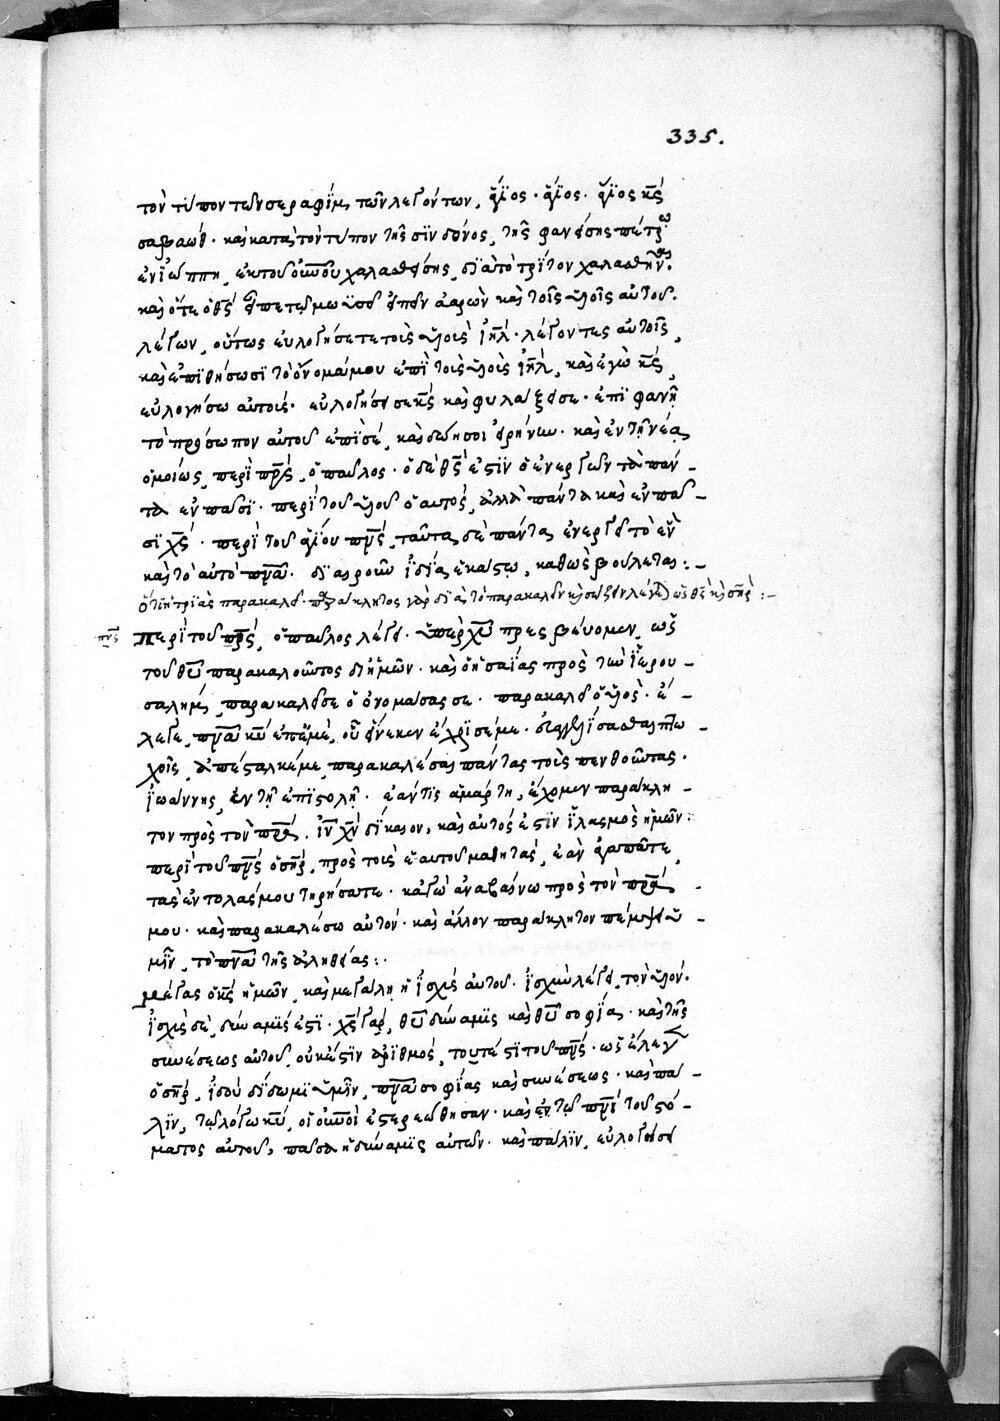 335.
τὸν τύπον τῶν σεραφῒμ, τῶν λεγόντων, ἅγϊος · ἅγϊος · ἅγϊος κ̅ς̅
σαβαώθ · καὶ κατὰ τὸν τύπον τῆς σϊνδόνος, τῆς φανείσης πέτρω
ἐν ἰόππη, ἐκ τοῦ ο̅υ̅ν̅ο̅υ̅ χαλασθείσης, διὰ τὸ τρίτον χαλασθῆναι.
καὶ ὅτε ὁ θ̅ς̅ ἐπε τῶ μωϋσῆ εἰπεῖν ἀαρὼν καὶ τοῖς ὑϊοῖς αὐτοῦ.
λέγων, οὕτως εὐλογήσετε τοὺς ὑϊοὺς ι̅η̅λ̅ · λέγοντες αὐτοῖς,
καὶ ἐπϊθήσωσϊ τὸ ὄνομά μου ἐπὶ τοὺς ὑϊοὺς ι̅η̅λ̅, καὶ ἐγὼ κ̅ς̅,
εὐλογήσω αὐτούς · εὐλογήσει σε κ̅ς̅ καὶ φυλάξει σε · ἐπιφανῆ
τὸ πρόσωπον αὐτοῦ ἐπὶ σέ, καὶ δώη σοι εἰρήνην · καὶ ἐν τῆ νέα,
ὁμοίως, περὶ π̅ρ̅ς̅, ὁ παῦλος · ὁ δὲ θ̅ς̅ ἐστϊν ὁ ἐνεργῶν τὰ πάν -
τα ἐν πᾶσϊ · περὶ τοῦ ὑϊοῦ ὁ αὐτός, ἀλλὰ πάντα καὶ ἐν πᾶ -
σϊ χ̅ς̅ · περὶ τοῦ ἁγίου π̅ν̅ς̅, ταῦτα δὲ πάντα ἐνεργεῖ τὸ ἓν
καὶ τὸ αὐτὸ π̅ν̅α̅ · διαιροῦν ἰδίᾳ ἑκάστω, καθὼς βούλεται : -
ὅτι ἡ τριὰς παρακαλεῖ · παράκλητος γὰρ διὰ τὸ παρακαλεῖν
περὶ τοῦ π̅ρ̅ς̅, ὁ παῦλος λέγει · ὑπὲρ χ̅υ̅ πρεσβεύομεν, ὡς
τοῦ θ̅υ̅ παρακαλοῦντος δι' ἡμῶν · καὶ ὁ ἡσαΐας πρὸς τὴν ἱερου -
σαλήμ, παρακαλεῖ σε ὁ ὀνομάσας σε · παρακαλεῖ ὁ ὑϊός · ἐ -
λεγε, π̅ν̅α̅ κ̅υ̅ ἐπ' ἐμέ, οὗ εἵνεκεν ἔχρισέ με · εὐαγγελίσασθαι πτω -
χοῖς ἀπέσταλκέ με, παρακαλέσαι πάντας τοὺς πενθοῦντας ·
ἰωάννης, ἐν τῆ ἐπϊστολῆ · ἐάν τις ἁμάρτη, ἔχομεν παράκλη -
τον πρὸς τὸν π̅ρ̅α̅, ι̅ν̅ χ̅ν̅ δίκαιον, καὶ αὐτός ἐστϊν ἱλασμὸς ἡμῶν :
περὶ τοῦ π̅ν̅ς̅ ὁ σ̅η̅ρ̅, πρὸς τοὺς ἑαυτοῦ μαθητάς, ἐὰν ἀγαπᾶτε,
τὰς ἐντολάς μου τηρήσατε · κἀγὼ ἀναβαίνω πρὸς τὸν π̅ρ̅α̅ -
μου · καὶ παρακαλέσω αὐτόν · καὶ ἄλλον παράκλητον πέμψει ὑ -
μῖν, τὸ π̅ν̅α̅ τῆς ἀληθείας : ·
μέγας ὁ κ̅ς̅ ἡμῶν, καὶ μεγάλη ἡ ἰσχὺς αὐτοῦ · ἰσχὺν λέγει, τὸν ὑϊόν.
ἰσχὺς δὲ, δύναμϊς ἐστϊ · χ̅ς̅ γάρ, θ̅υ̅ δύναμϊς καὶ θ̅υ̅ σοφία · καὶ τῆς
συνέσεως αὐτοῦ, οὐκ ἔστϊν ἀρϊθμός, τουτέστϊ τοῦ π̅ν̅ς̅ · ὡς ἔλεγεν
ὁ σ̅η̅ρ̅, ἰδοὺ δίδωμϊ ὑμῖν, π̅ν̅α̅ σοφίας καὶ συνέσεως · καὶ πά -
λϊν, τῶ λόγω κ̅υ̅, οἱ ο̅υ̅ν̅ο̅ὶ ἐστερεώθησαν · καὶ ἐν τῶ π̅ν̅ϊ τοῦ στό -
ματος αὐτοῦ, πᾶσα ἡ δύναμϊς αὐτῶν · καὶ πάλϊν, εὐλογήσει